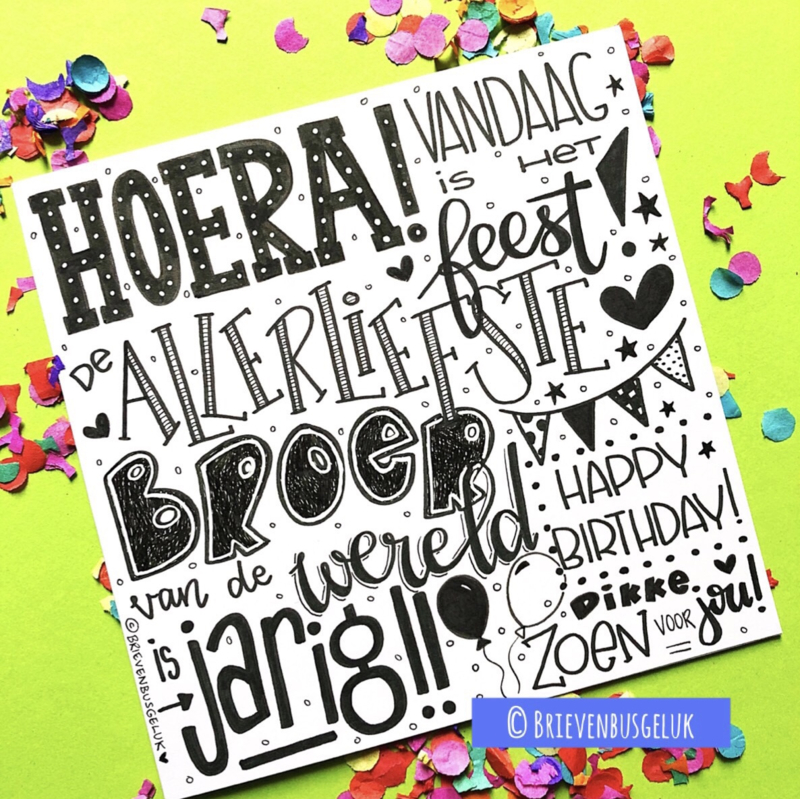 HOERA!
VANDAAG
is HeT
feest!
De ALLERLiEFSTE
BROER
van de wereld
is jarig!!
HAPPY
BIRTHDAY!
Dikke
ZOEN VOOR jou!
© BRIEVENBUSGELUK
© BRIEVENBUSGELUK